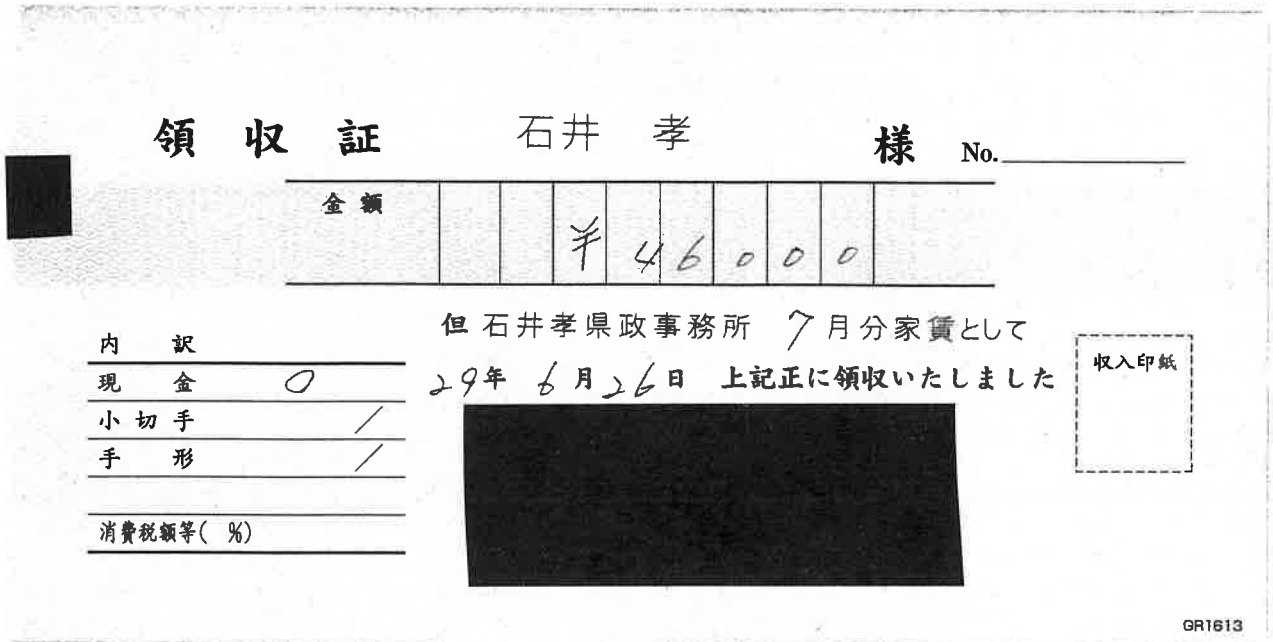 領 収 証 石井 孝 様 No.
金額 ¥46000
但 石井孝県政事務所 7月分家賃として
29年 6月26日 上記正に領収いたしました
内 訳
現 金 〇
小切手 /
手 形 /
消費税額等( %)
収入印紙
GR1613